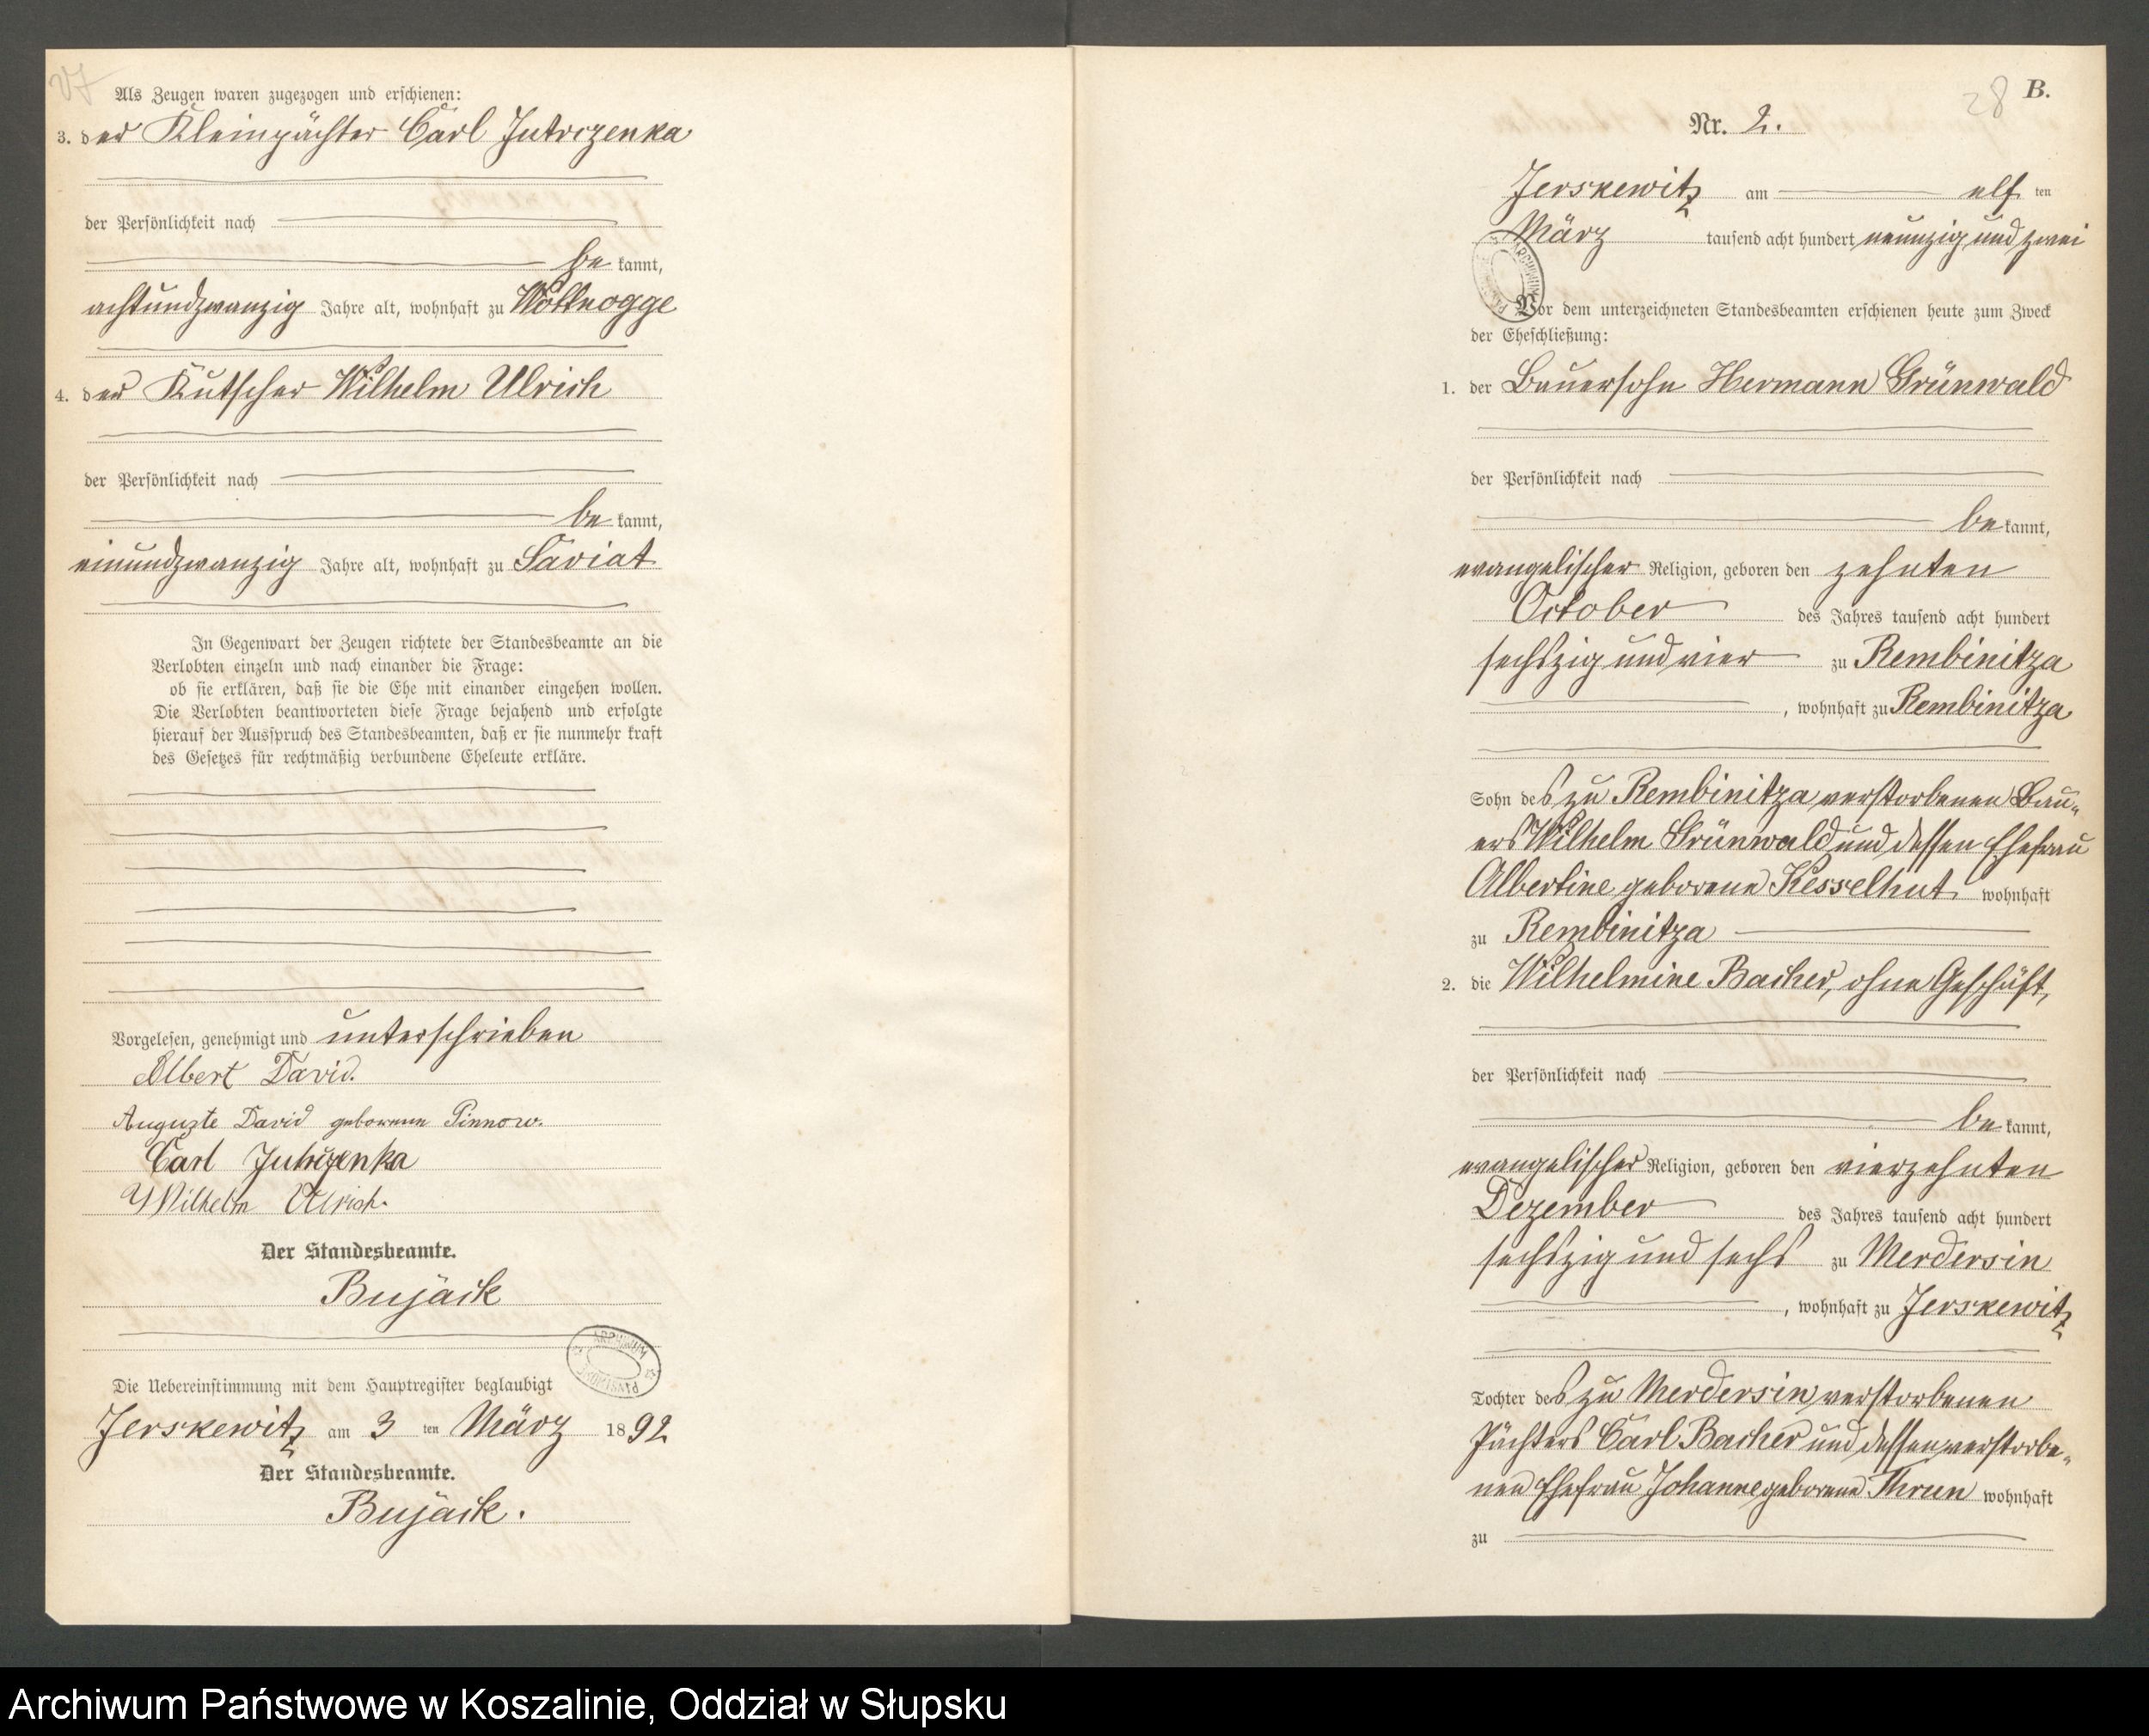 27
Als Zeugen waren zugezogen und erschienen:
3. der Kleinpächter Carl Jutrczenka
der Persönlichkeit nach
be kannt,
achtundzwanzig Jahre alt, wohnhaft zu Wottnogge
4. der Kutscher Wilhelm Ulrich
der Persönlichkeit nach
be kannt,
einundzwanzig Jahre alt, wohnhaft zu Saviat
In Gegenwart der Zeugen richtete der Standesbeamte an die
Verlobten einzeln und nach einander die Frage:
ob sie erklären, daß sie die Ehe mit einander eingehen wollen.
Die Verlobten beantworteten diese Frage bejahend und erfolgte
hierauf der Ausspruch des Standesbeamten, daß er sie nunmehr kraft
des Gesetzes für rechtmäßig verbundene Eheleute erkläre.
Vorgelesen, genehmigt und unterschrieben
Albert David.
Auguste David geborene Pinnow.
Carl Jutrczenka
Wilhelm Ulrich.
Der Standesbeamte.
Bujack
ARCHIWUM
Die Uebereinstimmung mit dem Hauptregister beglaubigt
Jerskewitz am 3 ten März 1892
Der Standesbeamte.
Bujack.
28 B.
Nr. 2.
Jerskewitz am elf ten
März tausend acht hundert neunzig und zwei
ARCHIWUM
Vor dem unterzeichneten Standesbeamten erschienen heute zum Zweck
der Eheschließung:
1. der Bauersohn Hermann Grünwald
der Persönlichkeit nach
be kannt,
evangelischer Religion, geboren den zehnten
October des Jahres tausend acht hundert
sechszig und vier zu Rembinitza
, wohnhaft zu Rembinitza
Sohn des zu Rembinitza verstorbenen Bau-
ers Wilhelm Grünwald und dessen Ehefrau
Albertine geborene Kesselhut wohnhaft
zu Rembinitza
2. die Wilhelmine Bacher, ohne Geschäft,
der Persönlichkeit nach
be kannt,
evangelischer Religion, geboren den vierzehnten
Dezember des Jahres tausend acht hundert
sechszig und sechs zu Merdersin
, wohnhaft zu Jerskewitz
Tochter des zu Merdersin verstorbenen
Pächters Carl Bacher und dessen verstorbe-
nen Ehefrau Johanne geborene Thrun wohnhaft
zu
Archiwum Państwowe w Koszalinie, Oddział w Słupsku